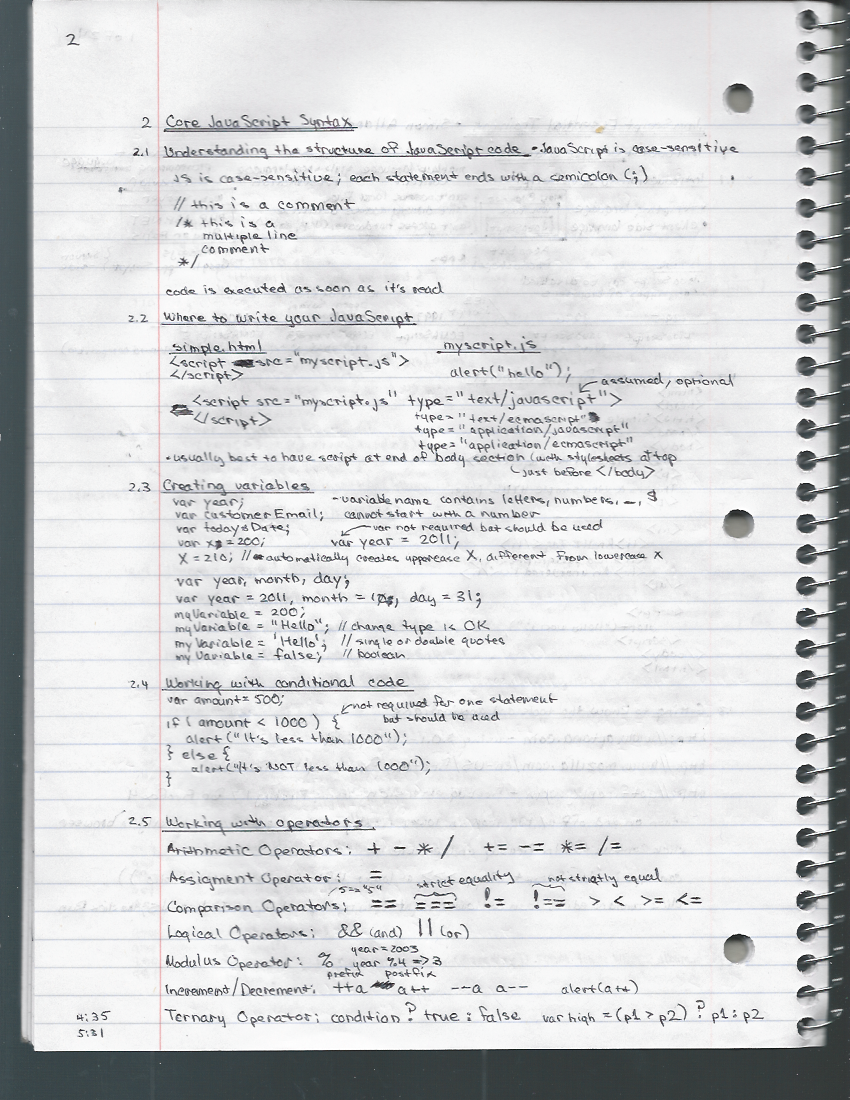 2
2 Core JavaScript Syntax
2.1 Understanding the structure of JavaScript code - JavaScript is case-sensitive
JS is case-sensitive; each statement ends with a semicolon (;)
// this is a comment
/* this is a
multiple line
comment
*/
code is executed as soon as it's read
2.2 Where to write your JavaScript
simple.html myscript.js
<script src="myscript.js"> alert("hello");
</script>
assumed, optional
<script src="myscript.js" type="text/javascript">
</script> type="text/ecmascript"
type="application/javascript"
type="application/ecmascript"
• usually best to have script at end of body section (with stylesheets at top
just before </body>
2.3 Creating variables
var year; - variable name contains letters, numbers, _, $
var customerEmail; cannot start with a number
var todaysDate; var not required but should be used
var x = 200; var year = 2011;
X = 210; // automatically creates uppercase X, different from lowercase x
var year, month, day;
var year = 2011, month = 10, day = 31;
myVariable = 200;
myVariable = "Hello"; // change type is OK
myVariable = 'Hello'; // single or double quotes
myVariable = false; // boolean
2.4 Working with conditional code
var amount = 500;
not required for one statement
if ( amount < 1000 ) { but should be used
alert("It's less than 1000");
} else {
alert("It's NOT less than 1000");
}
2.5 Working with operators
Arithmetic Operators: + - * / += -= *= /=
Assigment Operator: =
5=="5" strict equality not strictly equal
Comparison Operators: == === != !== > < >= <=
Logical Operators: && (and) || (or)
year=2003
Modulus Operator: % year %4 => 3
prefix postfix
Increment/Decrement: ++a a++ --a a-- alert(a++)
4:35 Ternary Operator: condition ? true : false var high = (p1 > p2) ? p1 : p2
5:31